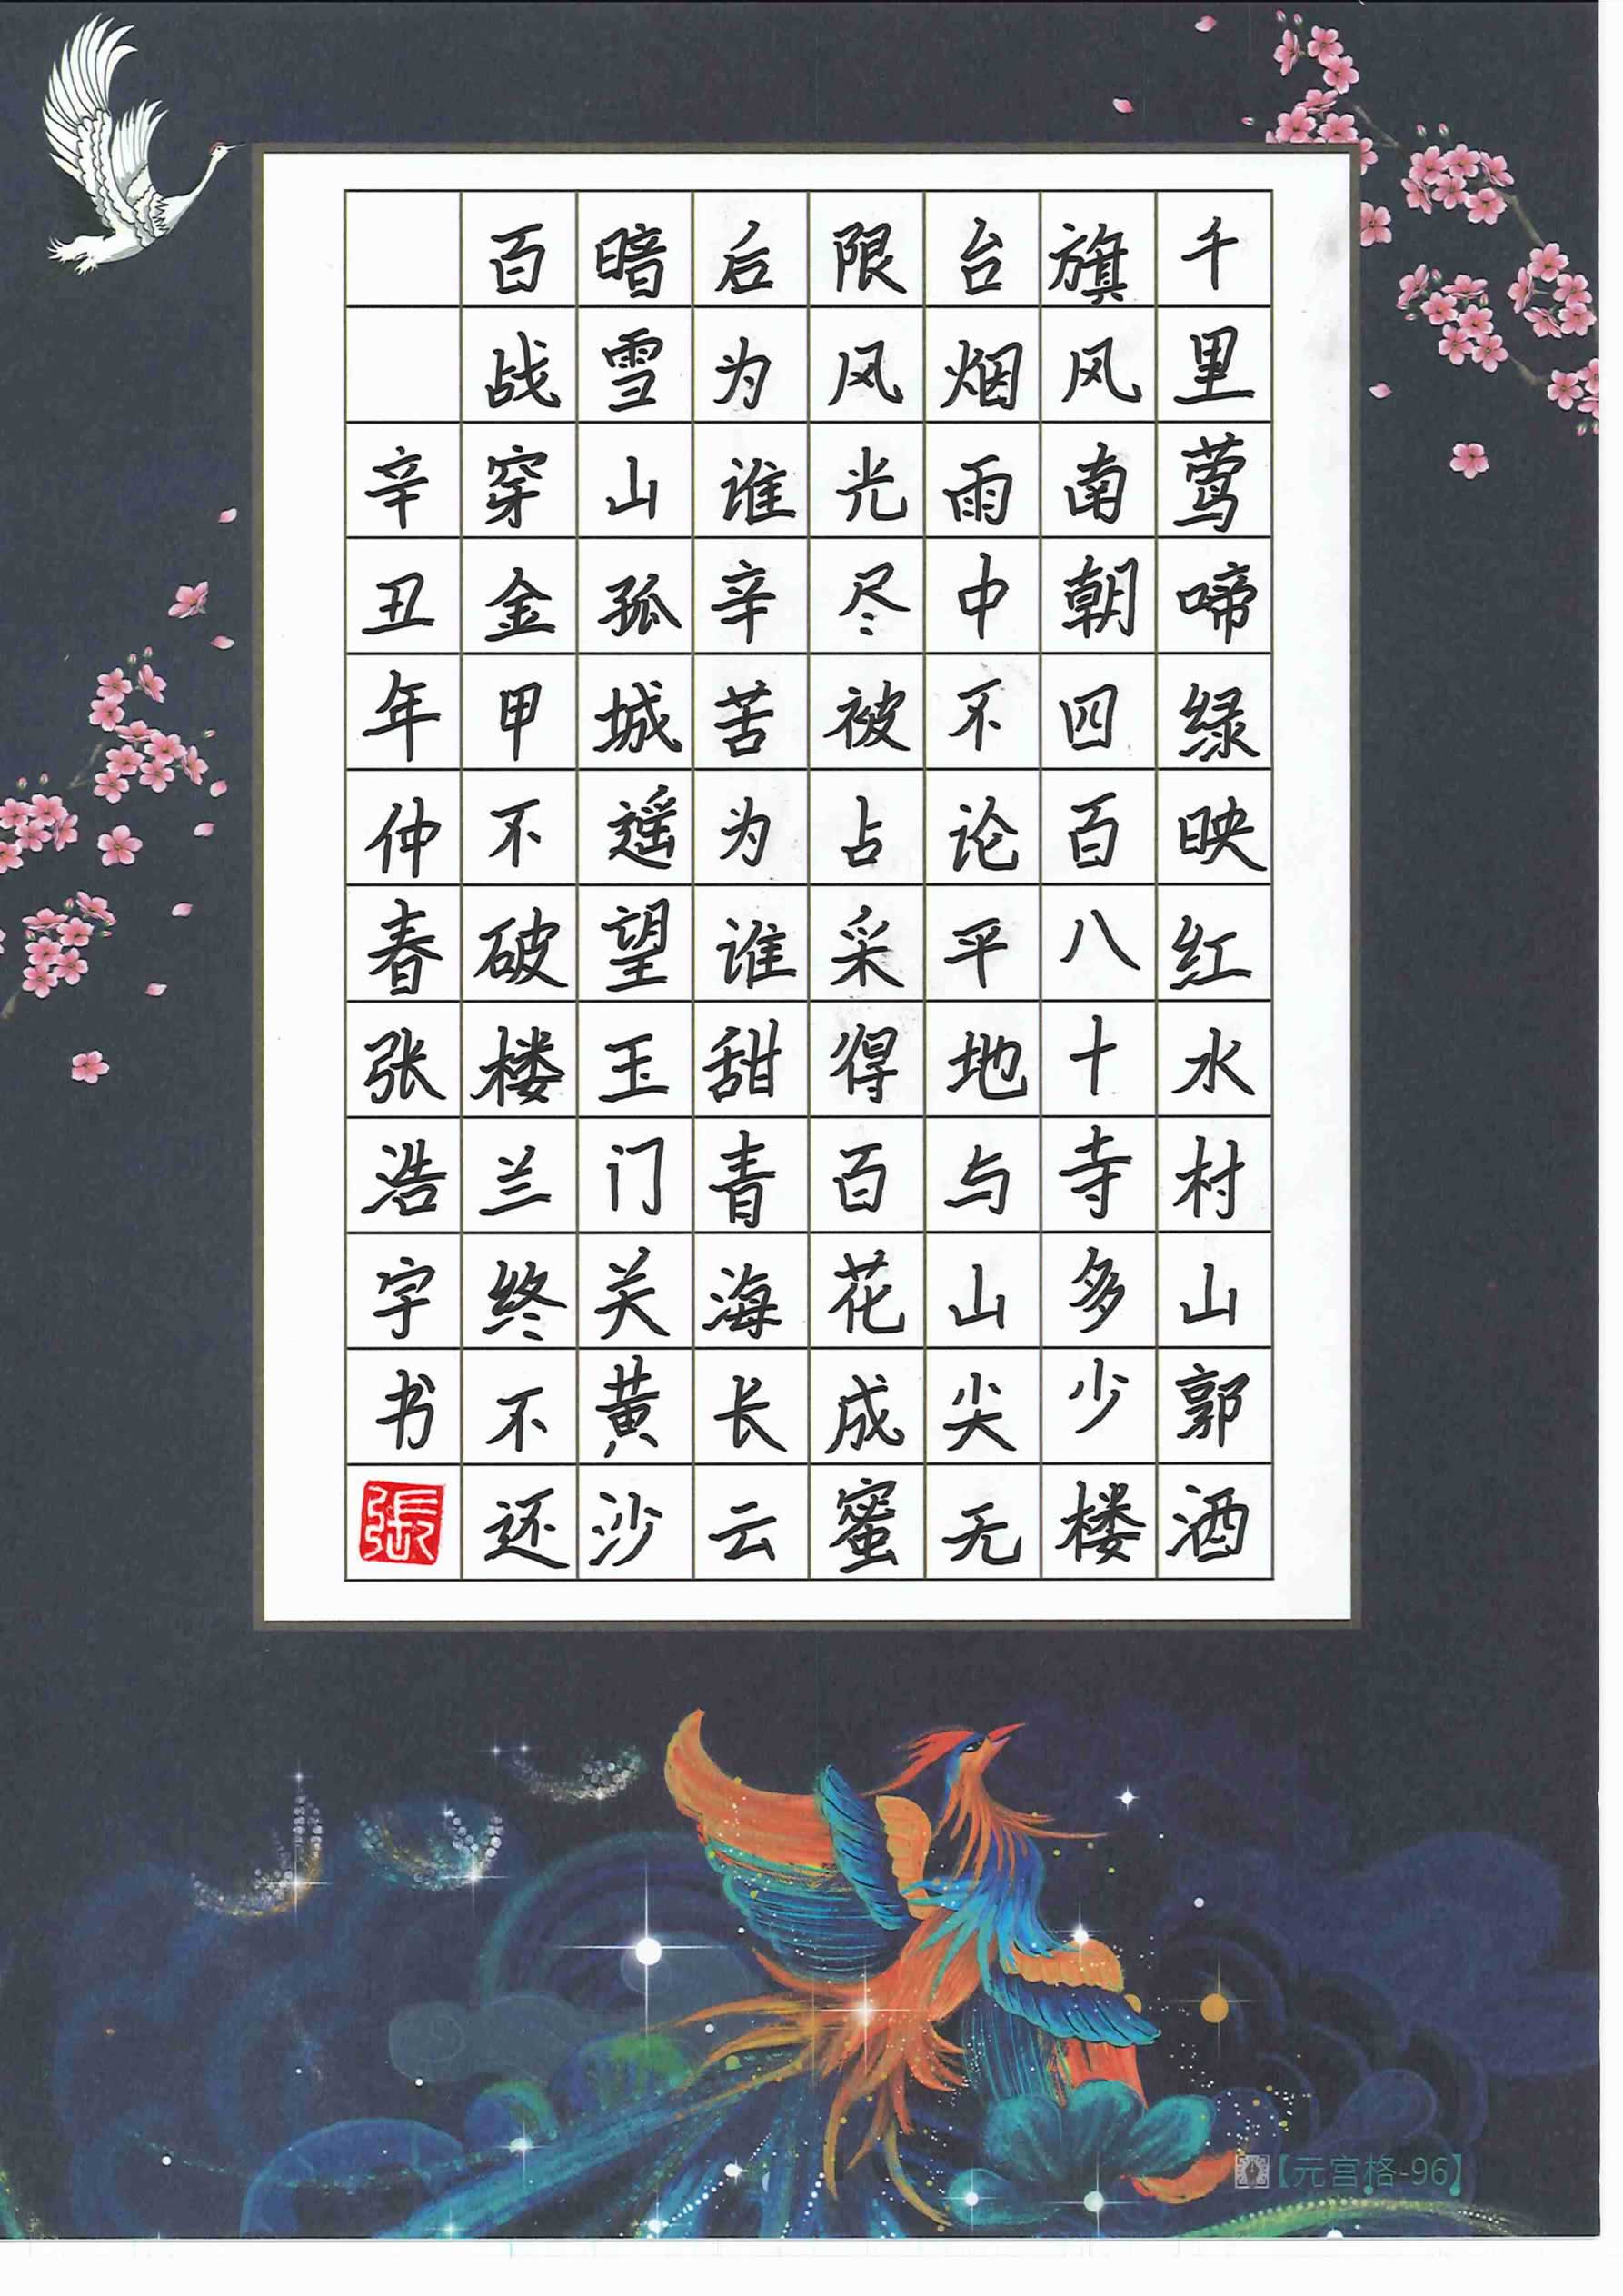 千里莺啼绿映红水村山郭酒
旗风南朝四百八十寺多少楼
台烟雨中不论平地与山尖无
限风光尽被占采得百花成蜜
后为谁辛苦为谁甜青海长云
暗雪山孤城遥望玉门关黄沙
百战穿金甲不破楼兰终不还
辛丑年仲春张浩宇书
張
【元宫格-96】